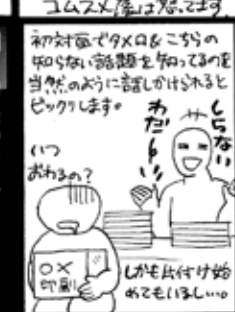 コムスメ屋は怒ってます。
初対面でタメ口&こちらの
知らない話題を知ってるのを
当然のように話しかけられると
ビックリします。
しらない
わだーい
いつ
おわるの?
○×
印刷
しかも片付け始
めてもいるし…。